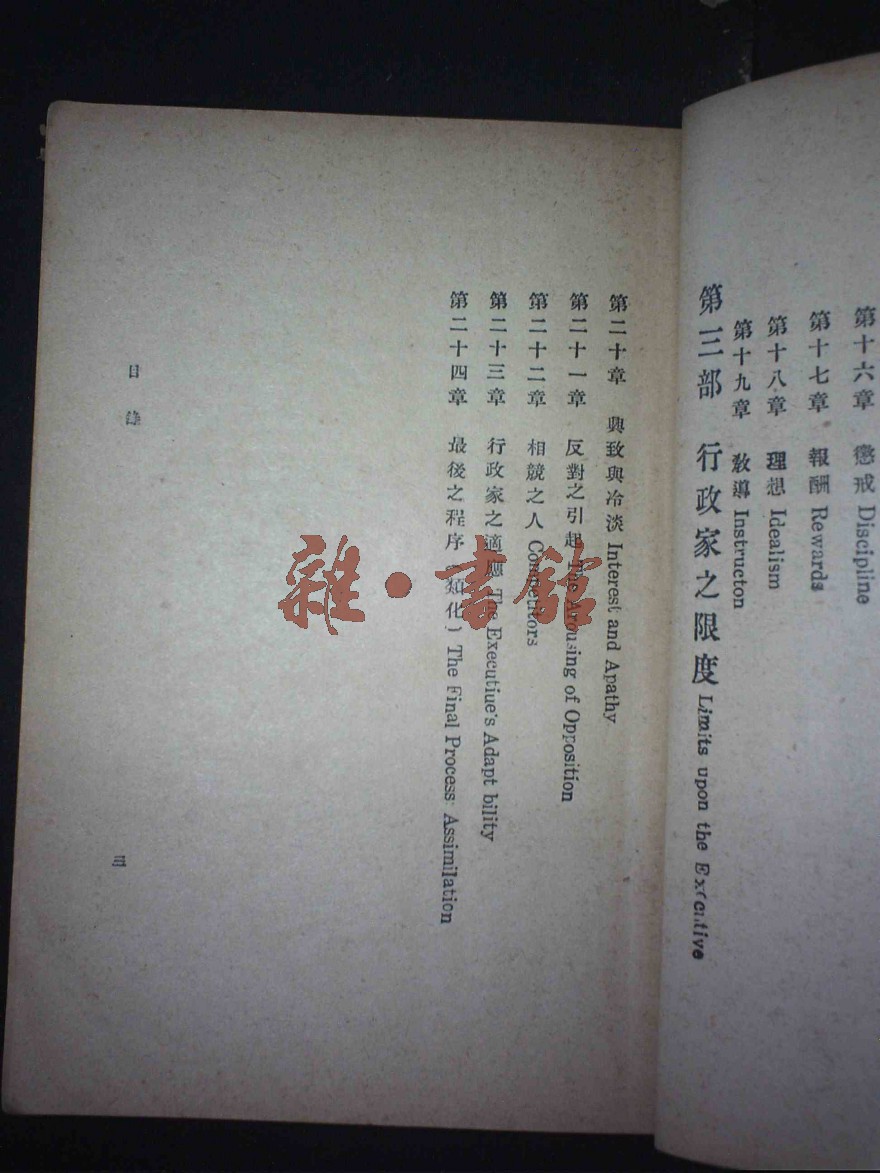 第十六章 懲戒 Discipline
第十七章 報酬 Rewards
第十八章 理想 Idealism
第十九章 教導 Instructon
第三部 行政家之限度 Limits upon the Executive
第二十章 興致與冷淡 Interest and Apathy
第二十一章 反對之引起 The Arousing of Opposition
第二十二章 相競之人 Competitors
第二十三章 行政家之適應 The Executiue's Adapt bility
第二十四章 最後之程序(類化) The Final Process: Assimilation
目錄
三
雜·書館